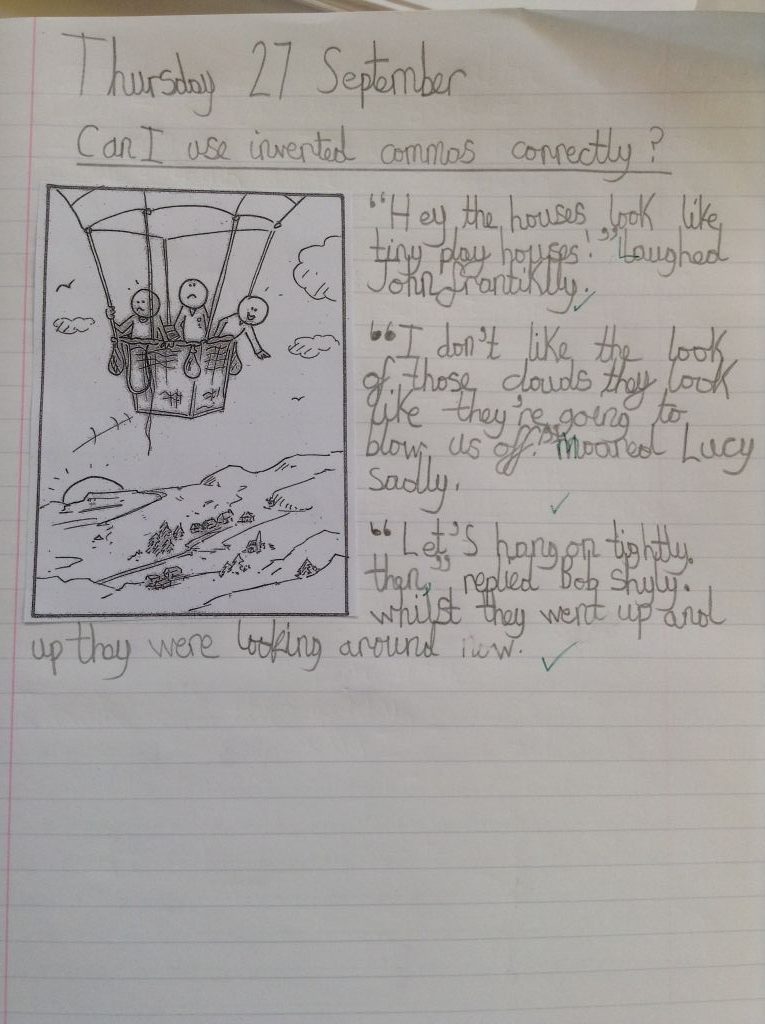 Thursday 27 September
Can I use inverted commas correctly?
“Hey the houses look like
tiny play houses!” Laughed
John frantiklly.
“I don't like the look
of those clouds they look
like they're going to
blow us off.” moaned Lucy
sadly.
“Let's hang on tightly.
then,” replied Bob Shyly.
whilst they went up and
up they were looking around now.